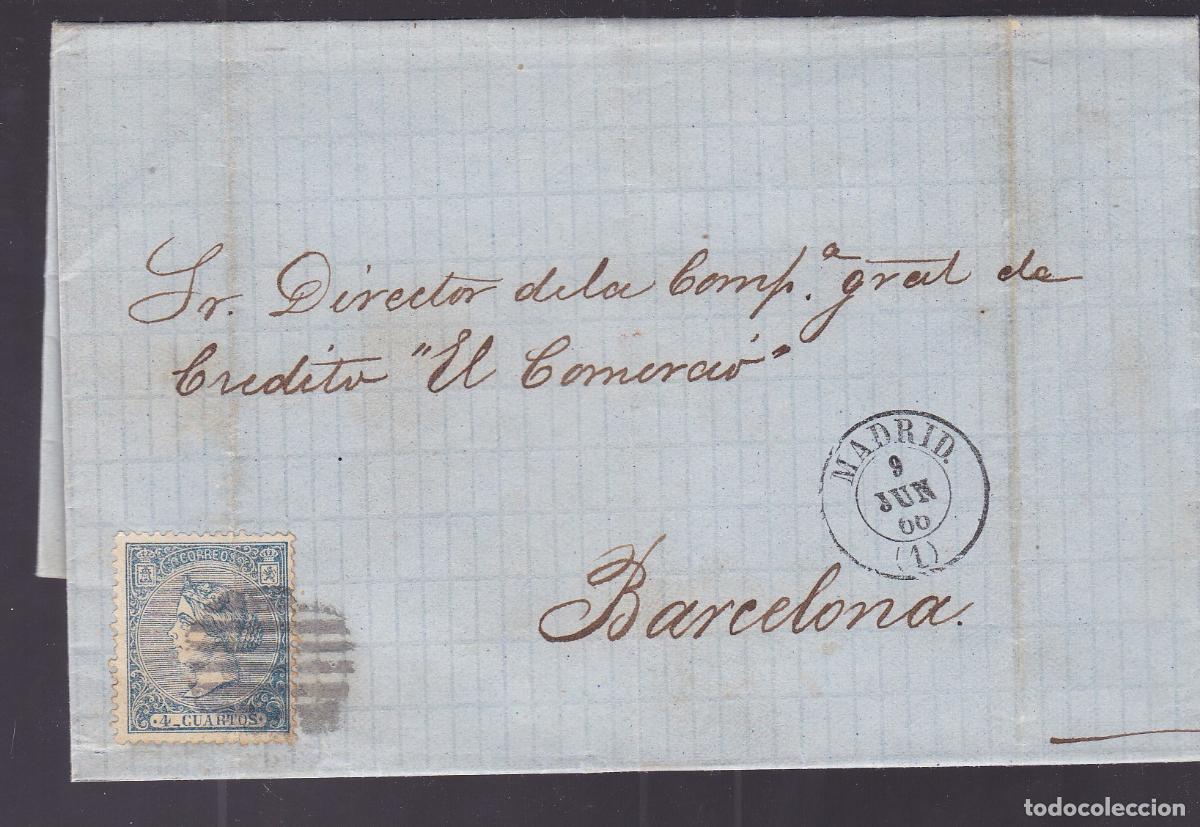 Sr. Director de la Comp.ª gral de
Credito "El Comercio"
MADRID.
9
JUN
66
(1)
Barcelona.
CORREOS
4_CUARTOS
todocoleccion